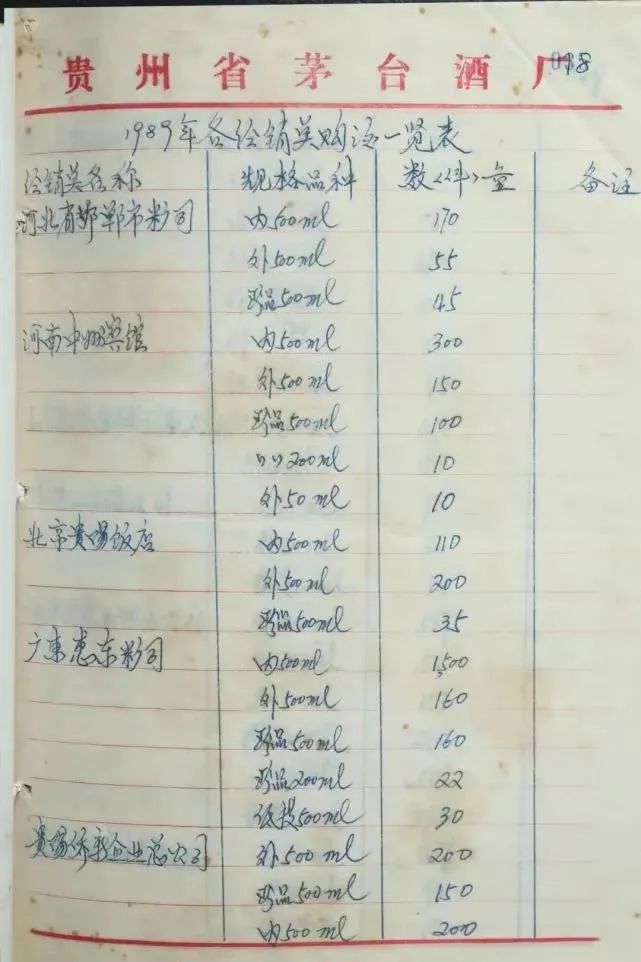 贵州省茅台酒厂
098
1989年各经销 购 一览表
经销 名称 规格品种 数(件)量 备注
河北省邯郸市 司 内500ml 170
外500ml 55
珍品500ml 45
河南中州宾馆 内500ml 300
外500ml 150
珍品500ml 100
〃 200ml 10
外50ml 10
北京贵阳饭店 内500ml 110
外500ml 200
珍品500ml 35
广东惠东 司 内500ml 1500
外500ml 160
珍品500ml 160
珍品200ml 22
500ml 30
贵阳侨新企业总公司 外500ml 200
珍品500ml 150
内500ml 200